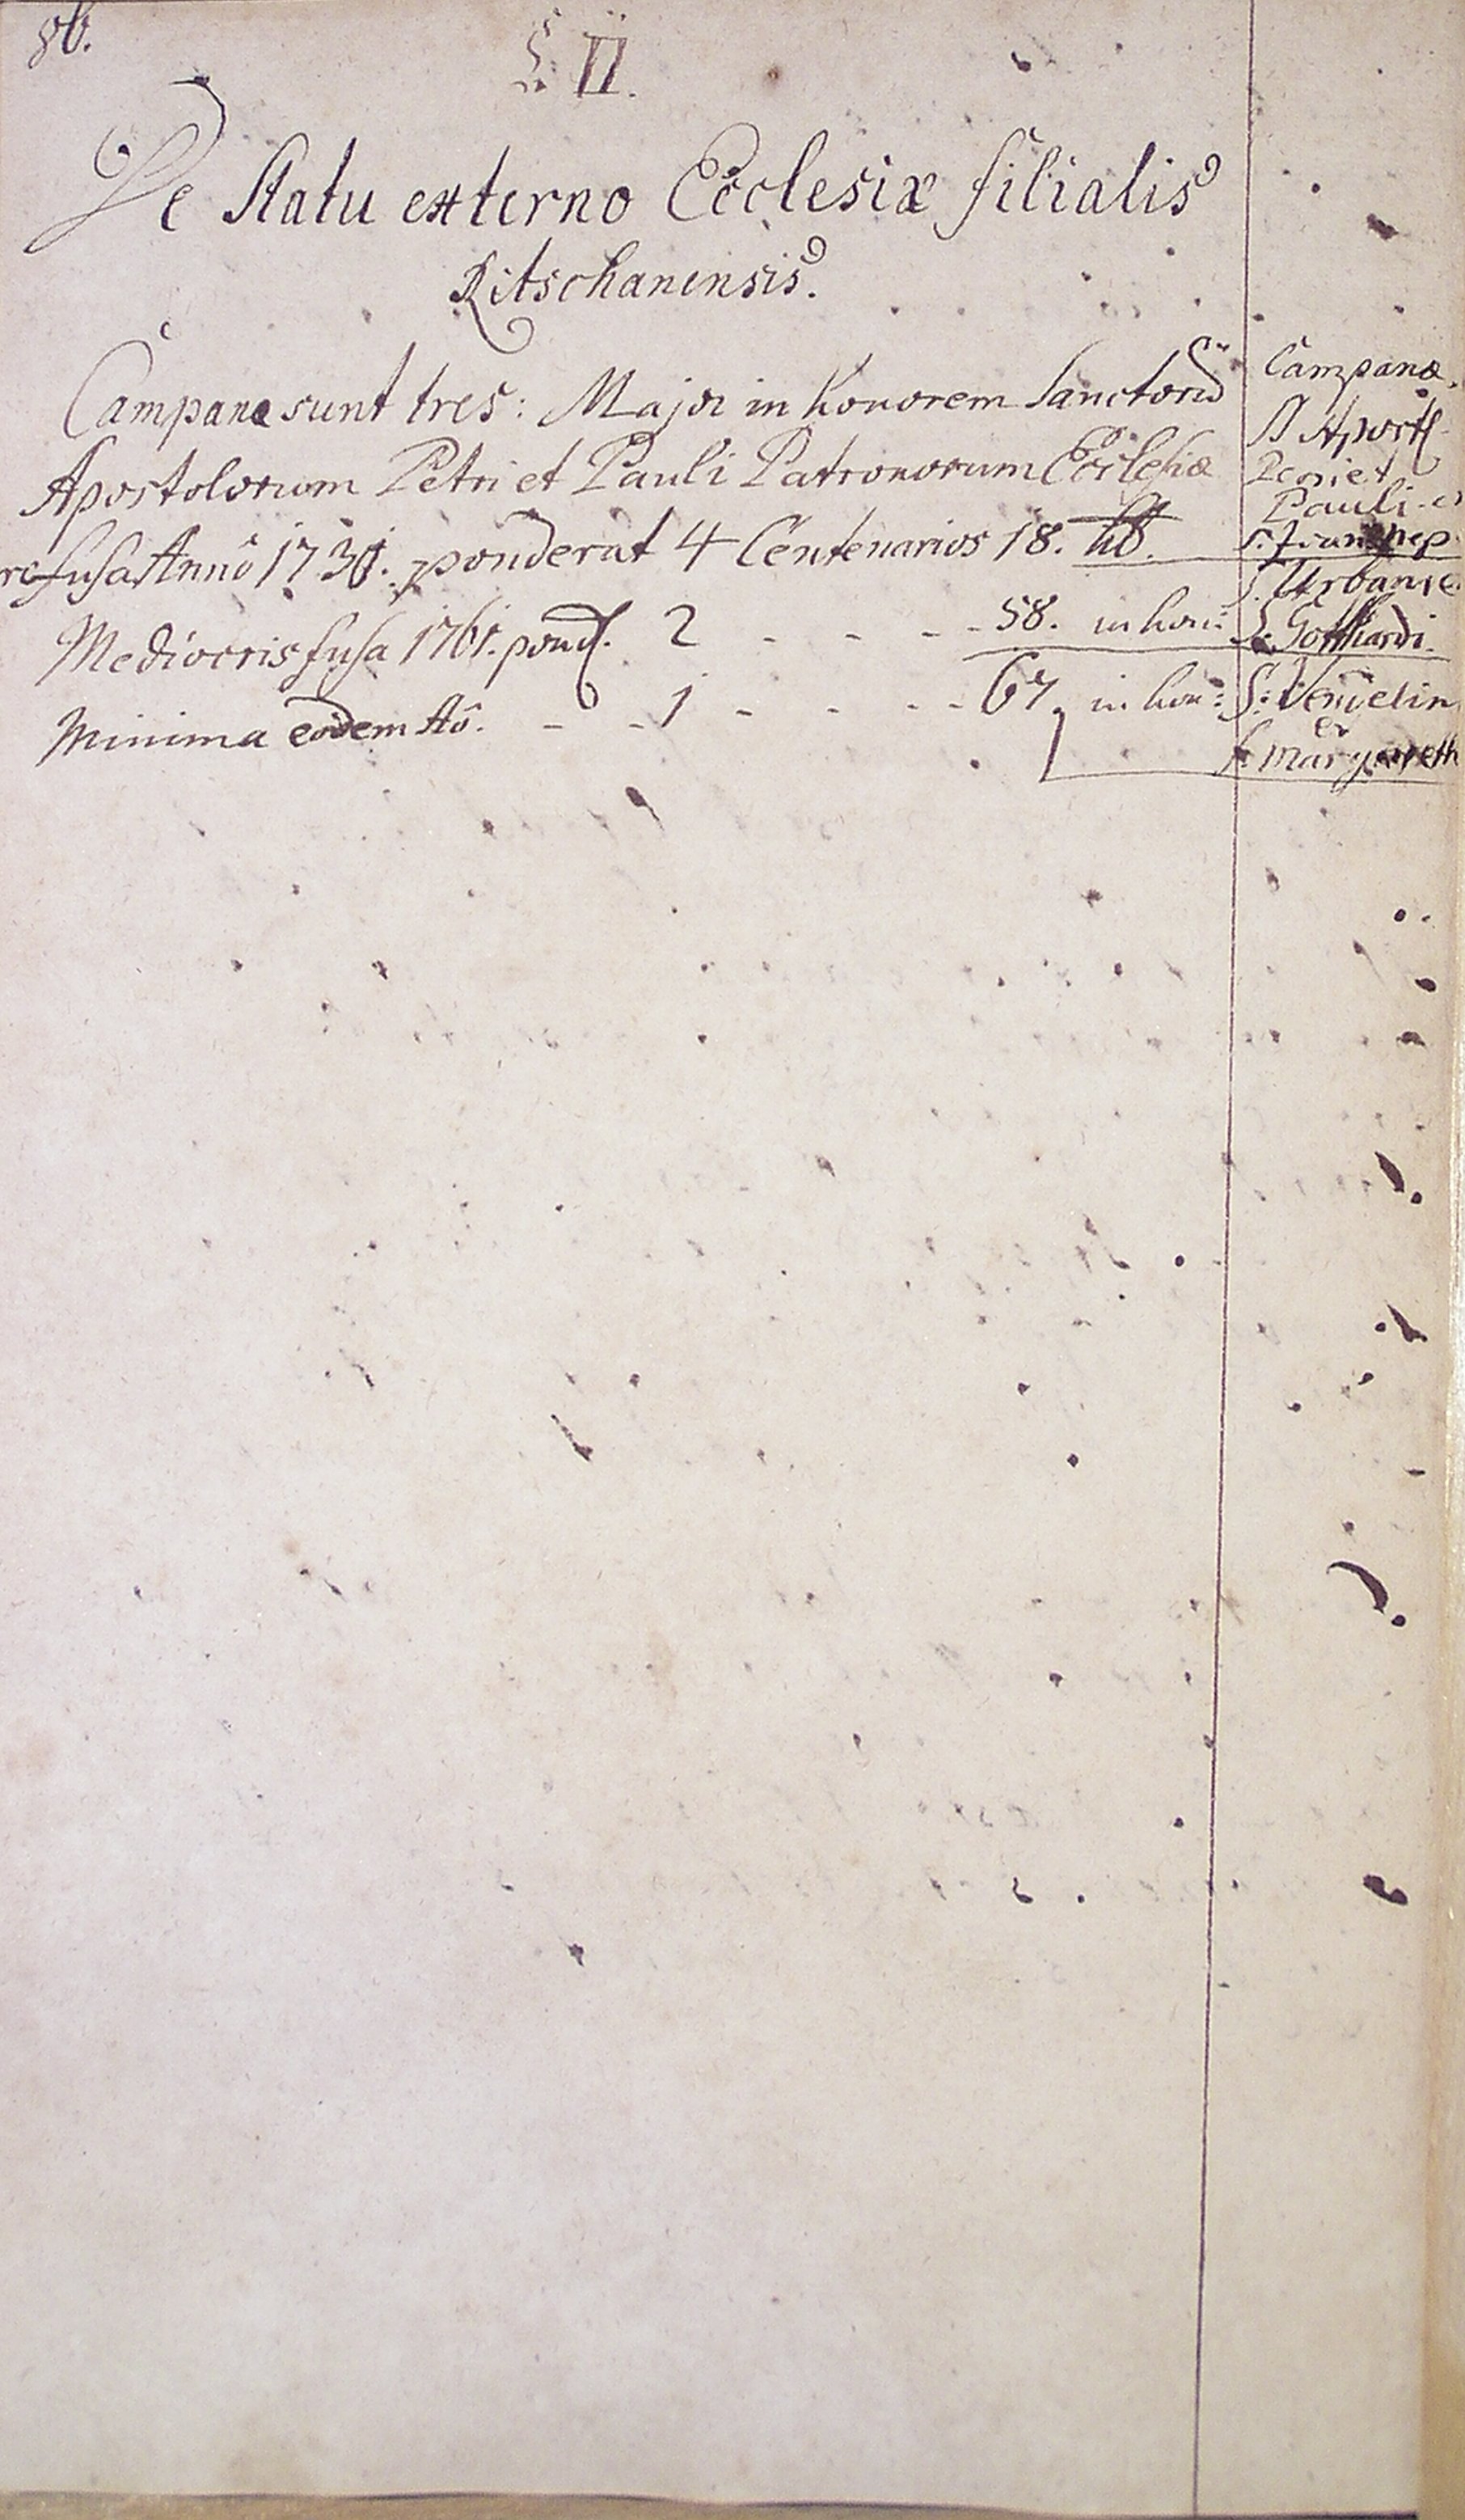 86.
§. II.
De Statu externo Ecclesiæ filialis
Kitschanensis.
Campanæ sunt tres: Major in honorem Sanctorũ
Apostolorum Petri et Pauli Patronorum Ecclesiæ
refusa Annô ponderat 4 Centenarios 18. lib.
Mediocris fusa 1761. pond. 2 - - - - 58. in hon:
Minima eodem Aô. - - 1 - - - - 67. in hon:
Campanæ.
SS Apost.
Petri et
Pauli
S. Joan nep.
S. Urbani e
S. Gotthardi.
S: Venceslai
et
S. Margareth